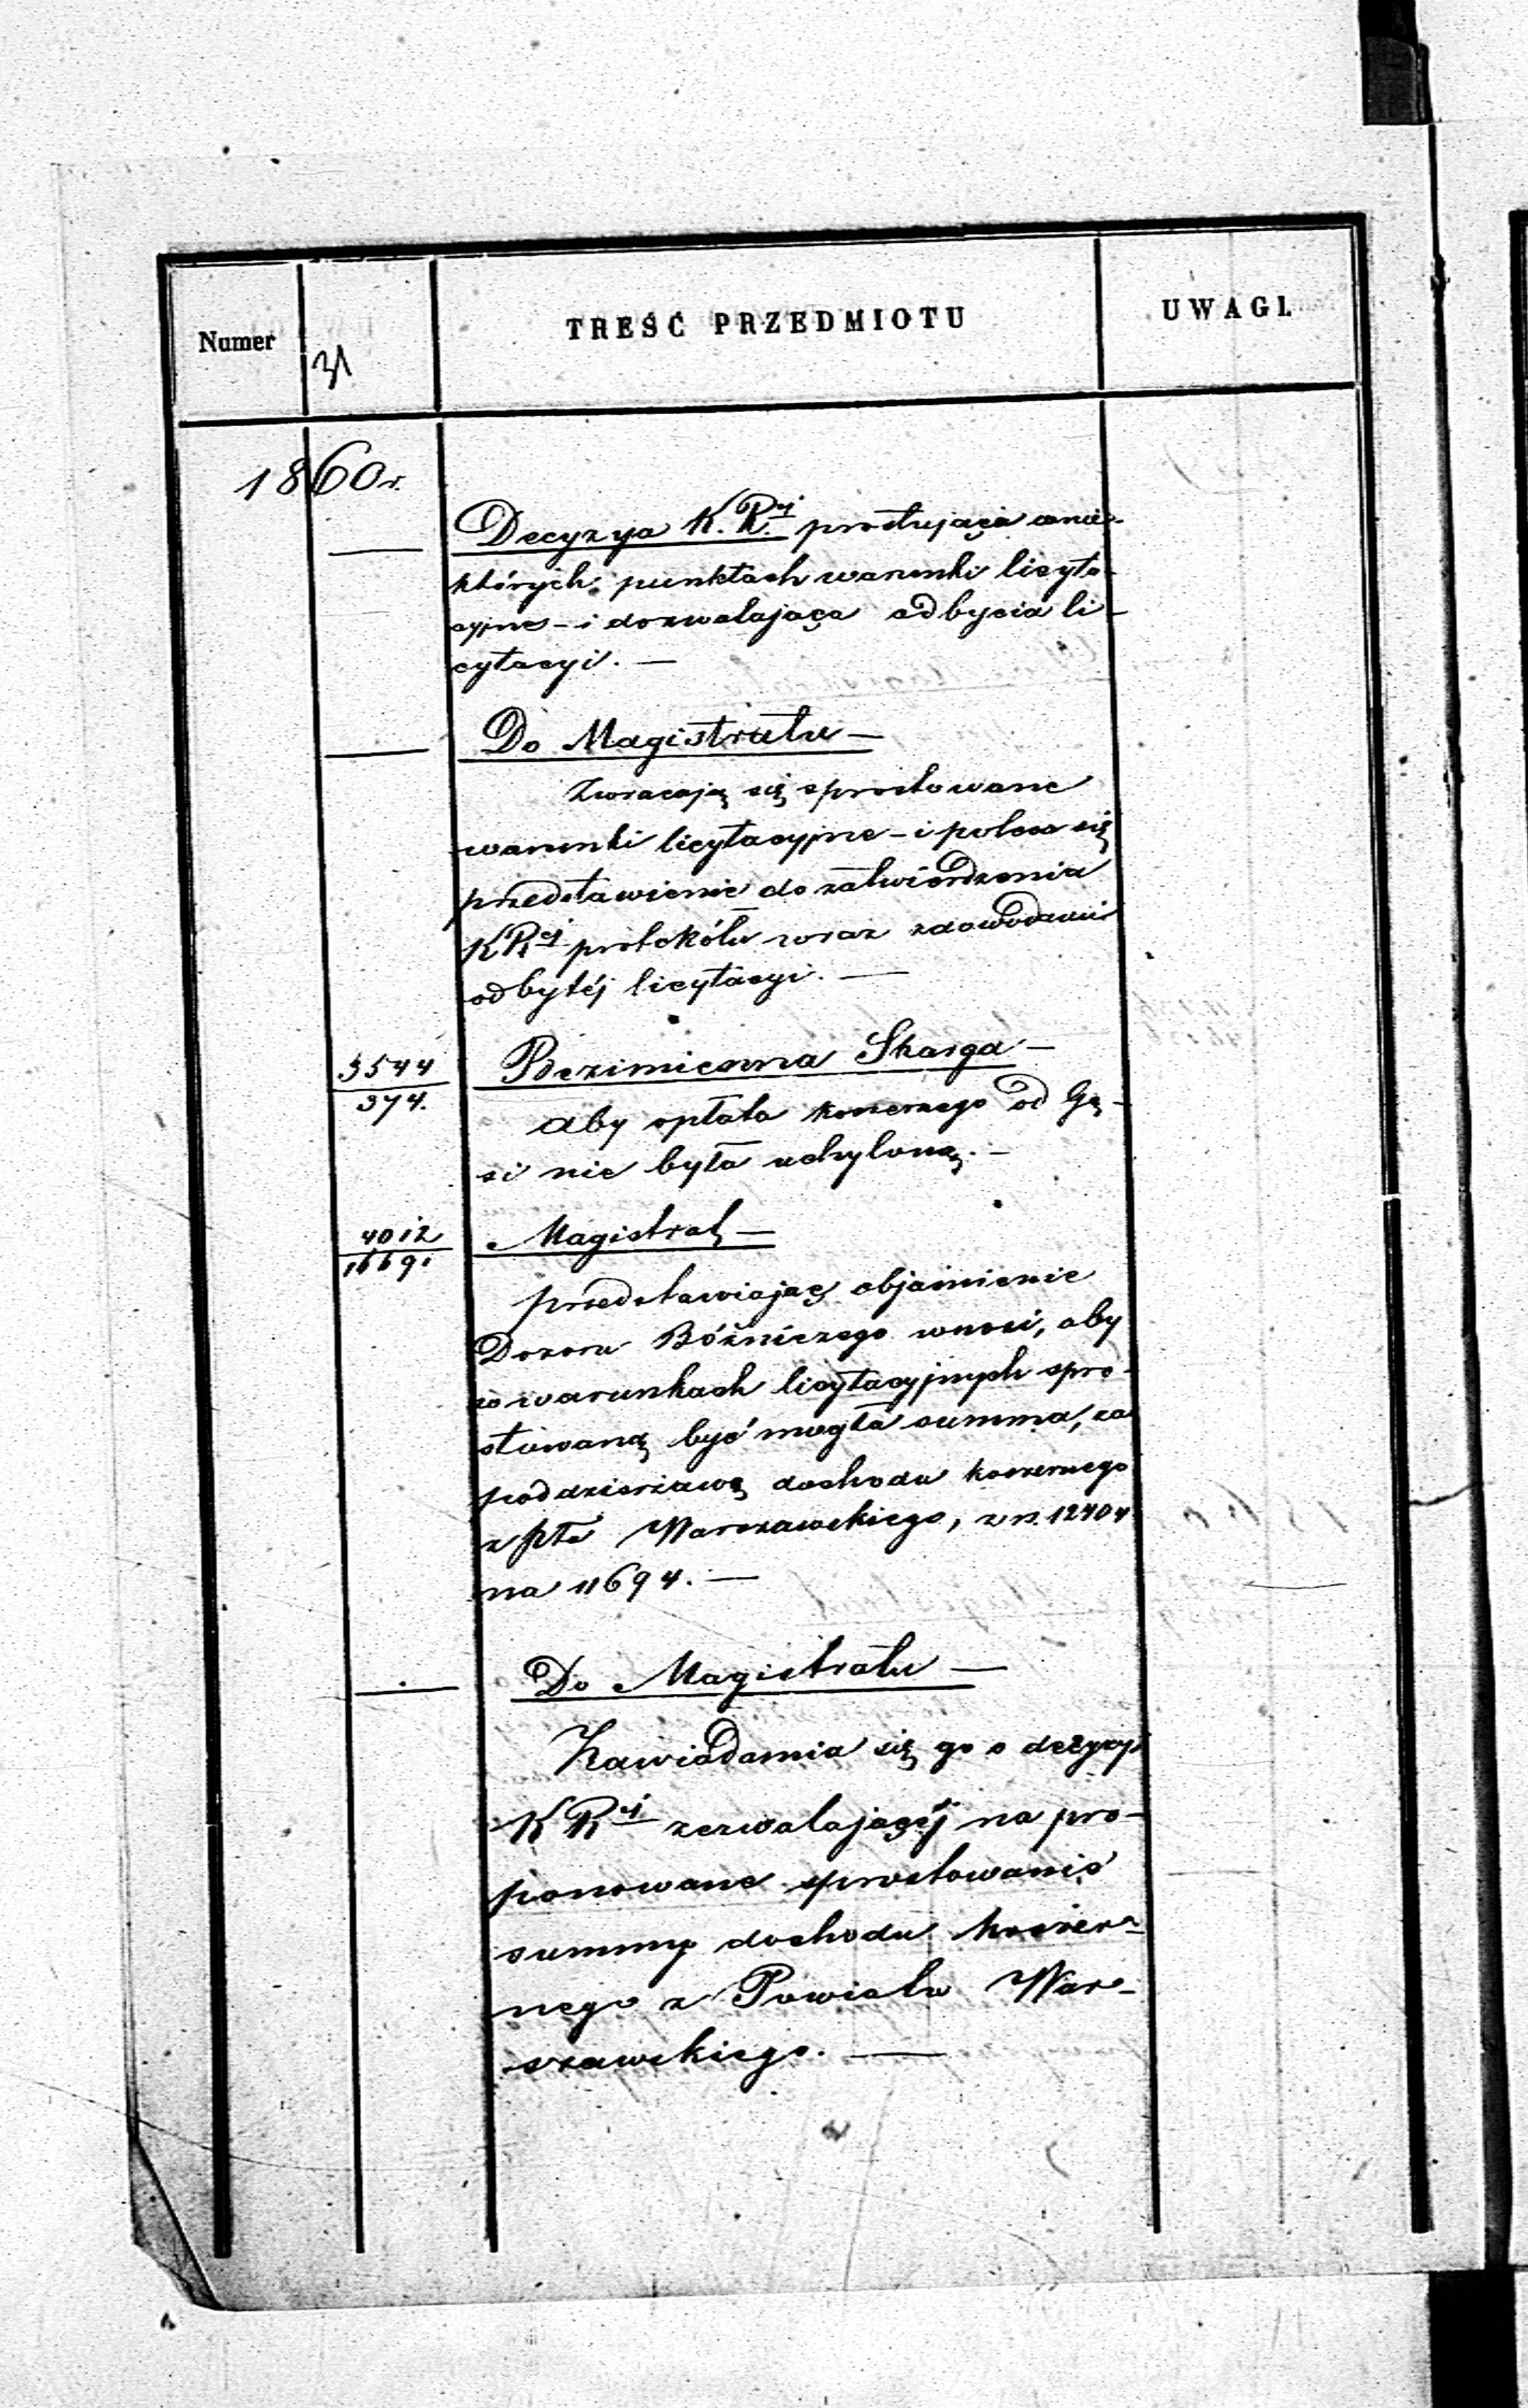 Numer
31
TREŚĆ PRZEDMIOTU
UWAGI.
1860 r.
Decyzya K. R.ej prostująca w nie-
których punktach warunki licyta-
cyjne - i dozwalająca odbycia li-
cytacyi. —
Do Magistratu —
Zwracają się sprostowane
warunki licytacyjne - i poleca się
przedstawienie do zatwierdzenia
K R ej protokółu wraz z dowodami
odbytéj licytacyi. —
3544
374.
Bezimienna Skarga —
aby opłata koszernego od Gę-
si nie była uchyloną. —
4012
1669.
Magistrat —
przedstawiając objaśnienie
Dozoru Bóżniczego wnosi, aby
w warunkach licytacyjnych spro-
stowaną być mogła summa, za
poddzierżawę dochodu koszernego
z Ptu Warszawskiego, z rs. 12404
na 11694. —
Do Magistratu —
Zawiadamia się go o decyzyi
K R ej zezwalającéj na pro-
ponowane sprostowanie
summy dochodu koszer-
nego z Powiatu War-
szawskiego. —